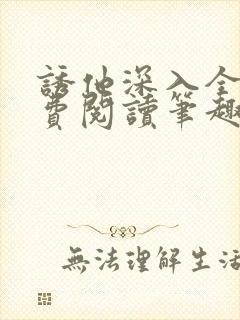 誘他深入全
費閱讀筆趣
無法理解生活